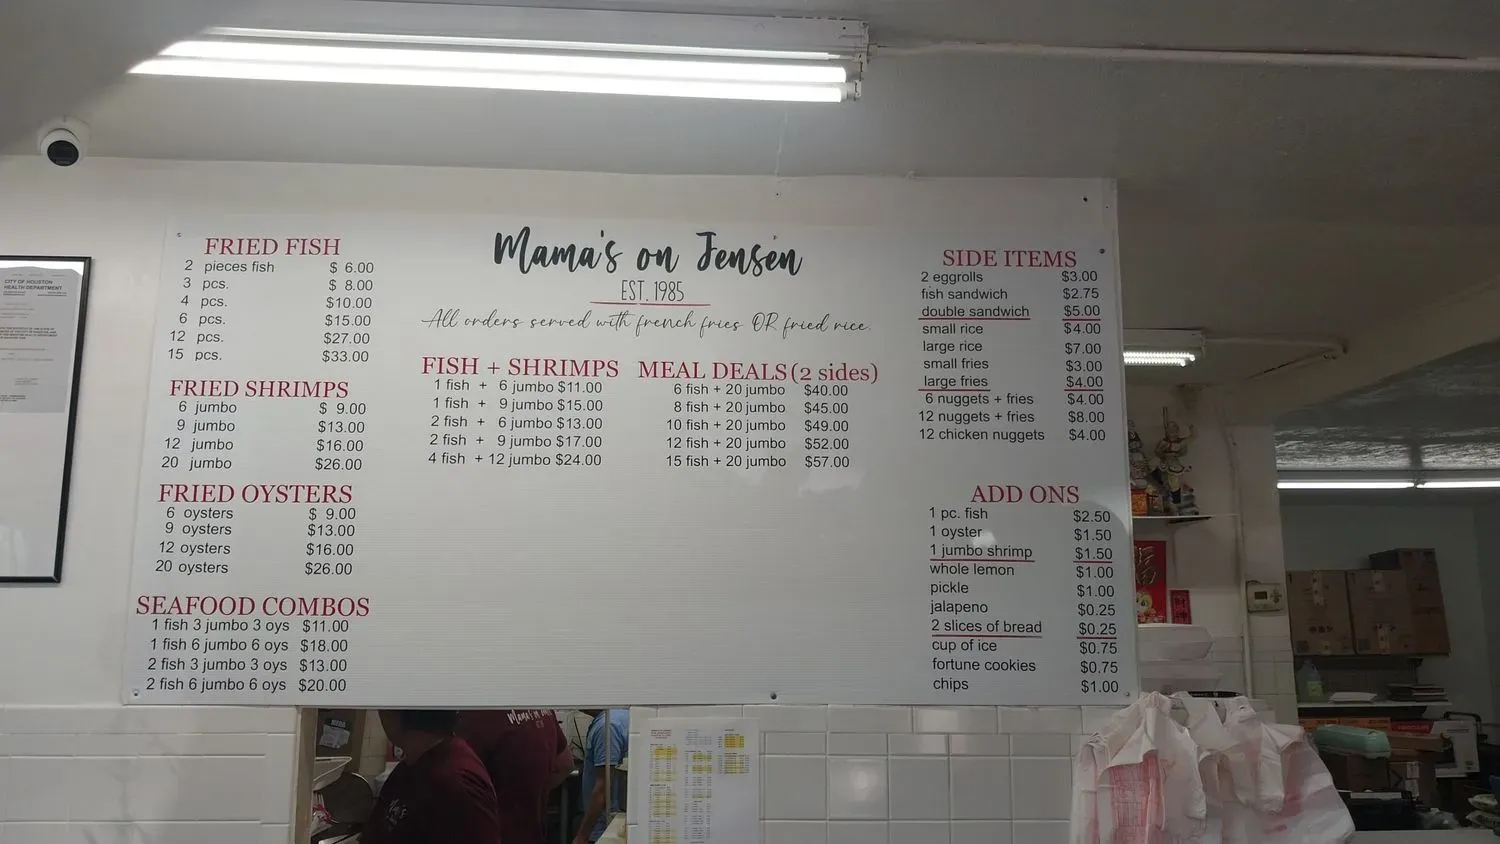 CITY OF HOUSTON
HEALTH DEPARTMENT
FRIED FISH
2 pieces fish $ 6.00
3 pcs. $ 8.00
4 pcs. $10.00
6 pcs. $15.00
12 pcs. $27.00
15 pcs. $33.00
FRIED SHRIMPS
6 jumbo $ 9.00
9 jumbo $13.00
12 jumbo $16.00
20 jumbo $26.00
FRIED OYSTERS
6 oysters $ 9.00
9 oysters $13.00
12 oysters $16.00
20 oysters $26.00
SEAFOOD COMBOS
1 fish 3 jumbo 3 oys $11.00
1 fish 6 jumbo 6 oys $18.00
2 fish 3 jumbo 3 oys $13.00
2 fish 6 jumbo 6 oys $20.00
Mama's on Jensen
EST. 1985
All orders served with french fries OR fried rice.
FISH + SHRIMPS
1 fish + 6 jumbo $11.00
1 fish + 9 jumbo $15.00
2 fish + 6 jumbo $13.00
2 fish + 9 jumbo $17.00
4 fish + 12 jumbo $24.00
MEAL DEALS (2 sides)
6 fish + 20 jumbo $40.00
8 fish + 20 jumbo $45.00
10 fish + 20 jumbo $49.00
12 fish + 20 jumbo $52.00
15 fish + 20 jumbo $57.00
SIDE ITEMS
2 eggrolls $3.00
fish sandwich $2.75
double sandwich $5.00
small rice $4.00
large rice $7.00
small fries $3.00
large fries $4.00
6 nuggets + fries $4.00
12 nuggets + fries $8.00
12 chicken nuggets $4.00
ADD ONS
1 pc. fish $2.50
1 oyster $1.50
1 jumbo shrimp $1.50
whole lemon $1.00
pickle $1.00
jalapeno $0.25
2 slices of bread $0.25
cup of ice $0.75
fortune cookies $0.75
chips $1.00
福
Mama's on